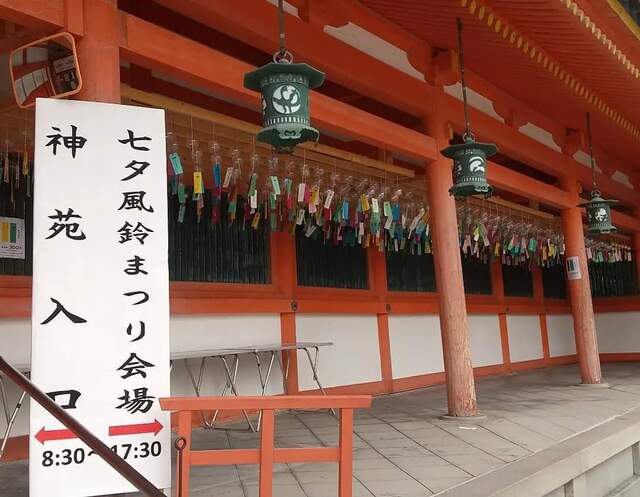 七夕風鈴まつり会場
神苑入口
8:30～17:30